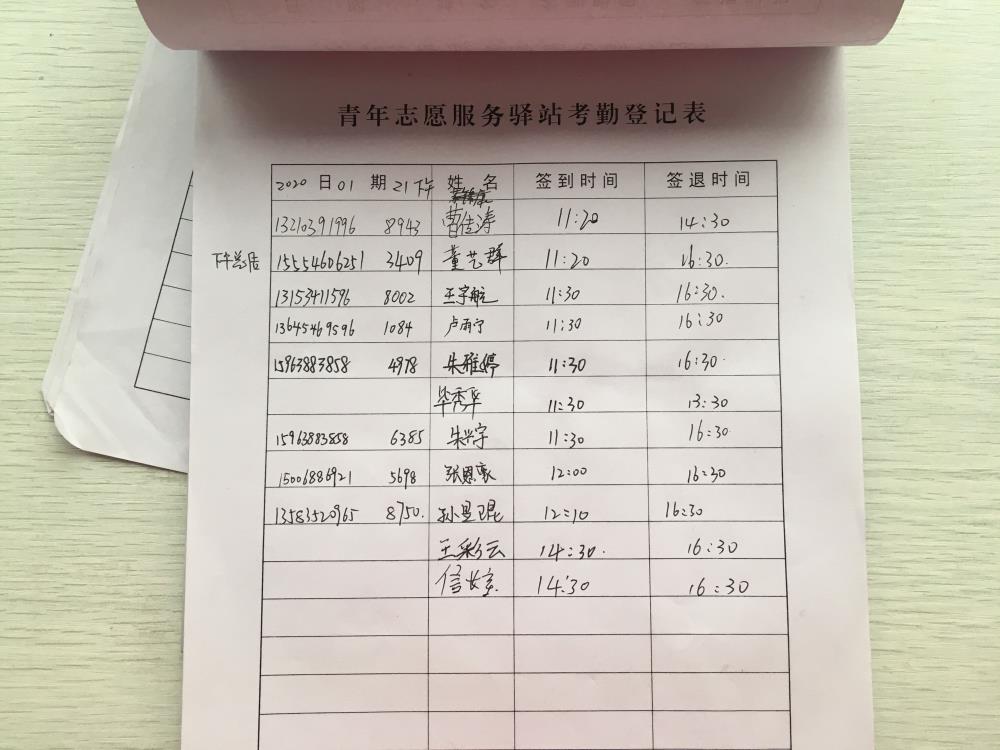 青年志愿服务驿站考勤登记表
2020 日01 期21下午 姓名 签到时间 签退时间
13210391996 8943 曹佳涛 11:20 14:30
下午总店 15554606251 3409 董艺群 11:20 16:30.
13153411596 8002 王宇航 11:30 16:30.
13645469596 1084 卢雨宁 11:30 16:30
15963883858 4978 朱雅婷 11:30 16:30
毕秀华 11:30 13:30
15963883858 6385 朱兴宇 11:30 16:30
15006886921 5698 张恩豪 12:00 16:30
13583520965 8750. 孙昱琨 12:10 16:30
王彩云 14:30. 16:30
信 14:30 16:30